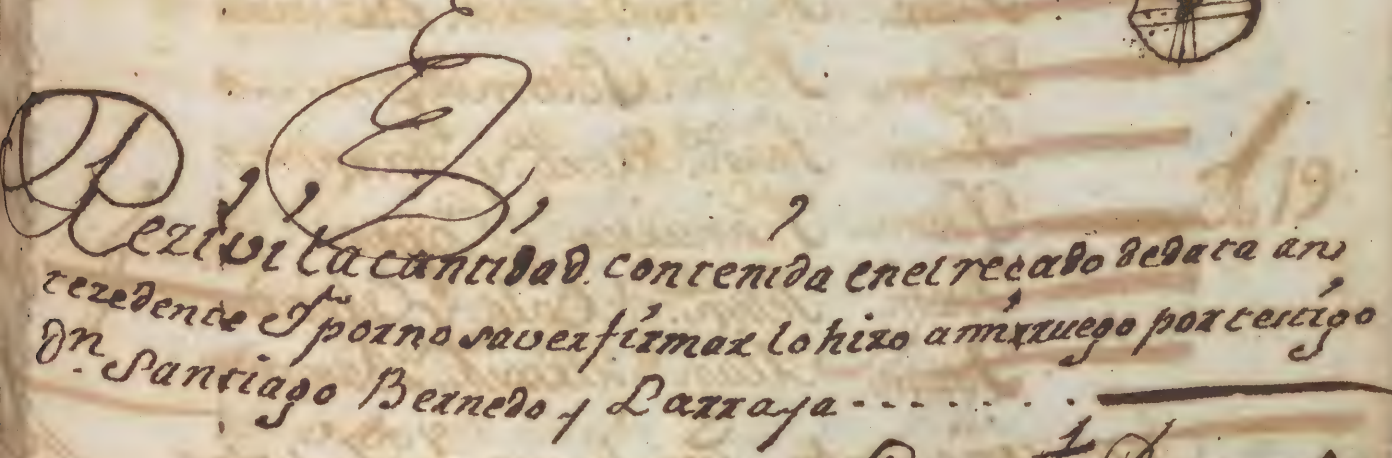 Rezivi la cantidad contenida en el recado de data an
tezedente y por no saver firmar lo hizo a mi ruego por testigo
Dn. Santiago Bernedo y Larraya